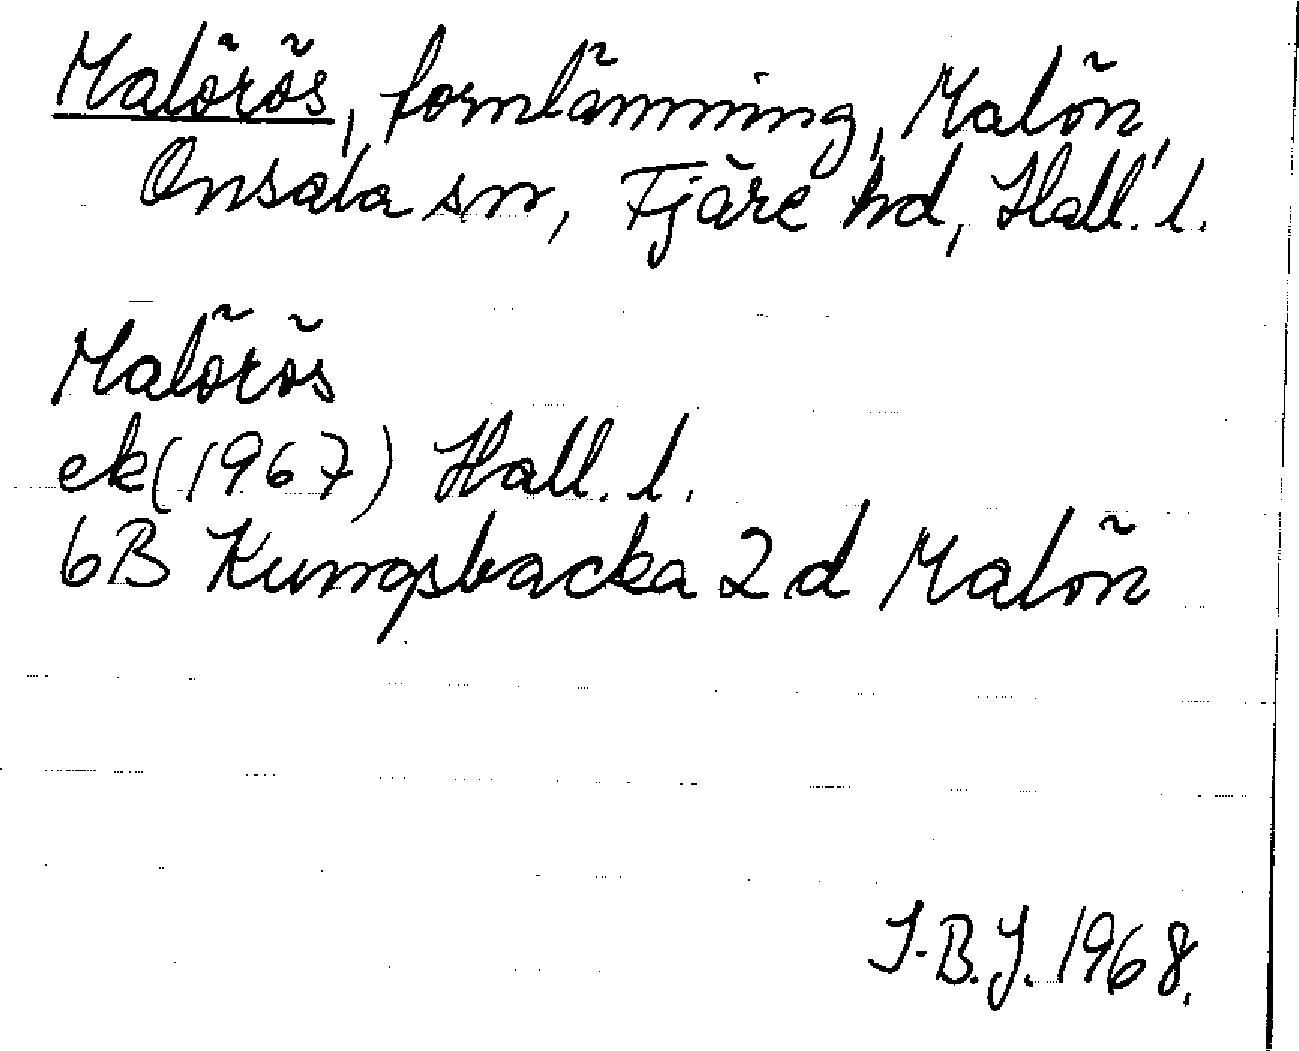 Malörös, fornlämning, Malön,
Onsala sn, Fjäre hd, Hall. l.
Malörös
ek (1967) Hall. l.
6B Kungsbacka 2d Malön
I-B.J. 1968.